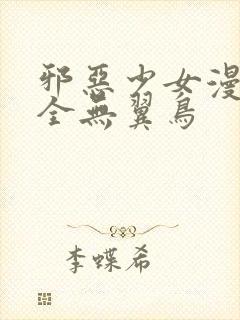 邪惡少女漫
全無翼鳥
李蝶希